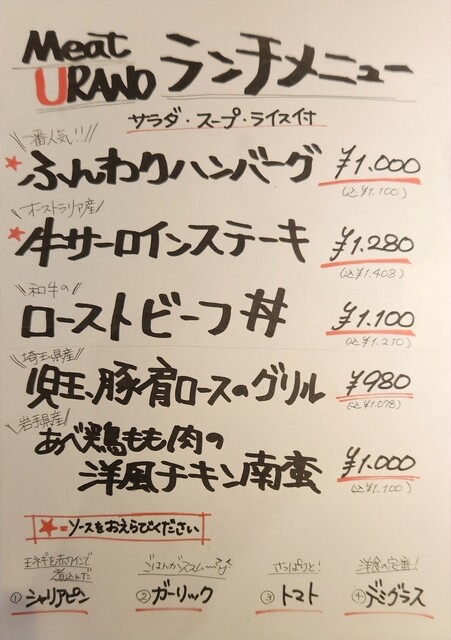 Meat URANO ランチメニュー
サラダ・スープ・ライス付
一番人気!!
★ふんわりハンバーグ ¥1.000
(込¥1.100)
オーストラリア産
★牛サーロインステーキ ¥1.280
(込¥1.408)
和牛の
ローストビーフ丼 ¥1.100
(込¥1.210)
埼玉県産
児玉、豚肩ロースのグリル ¥980
(込¥1.078)
岩手県産
あべ鶏もも肉の
洋風チキン南蛮 ¥1.000
(込¥1.100)
★=ソースをおえらびください
玉ネギを赤ワインで煮込んだ
①シャリアピン
ごはんがススム〜
②ガーリック
さっぱりと!
③トマト
洋食の定番!
④デミグラス